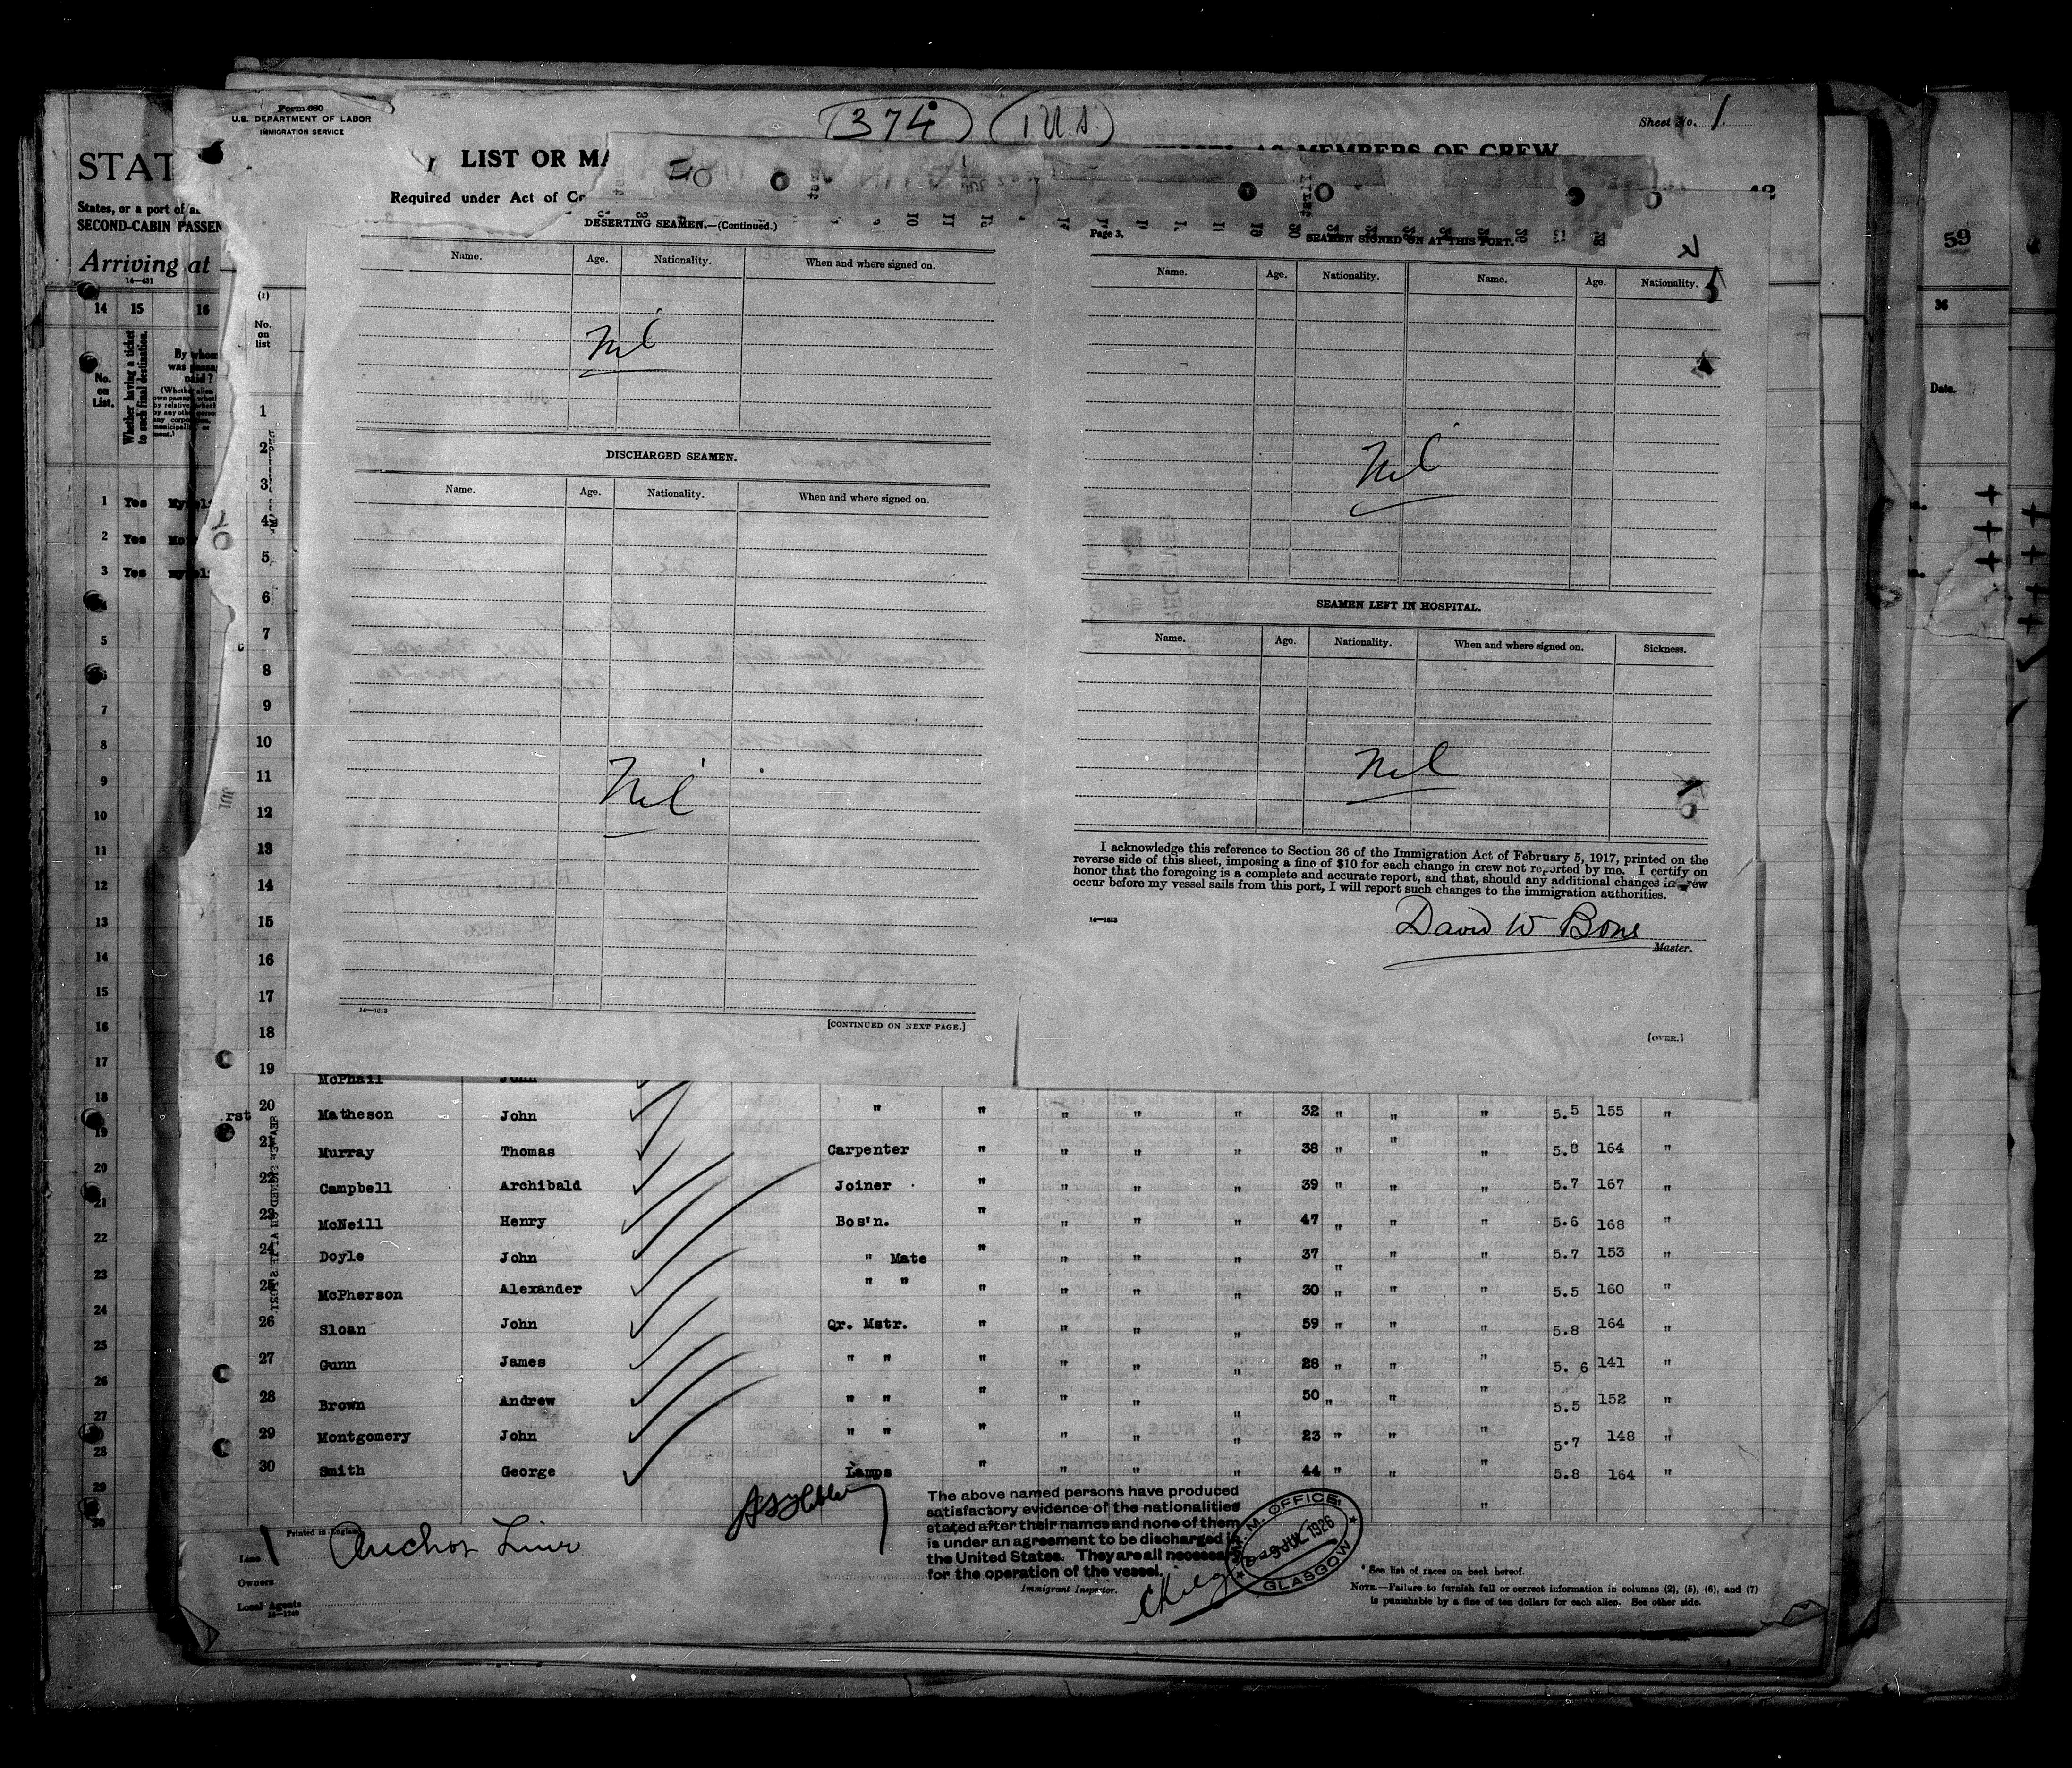 Form 680
U.S. DEPARTMENT OF LABOR
IMMIGRATION SERVICE
374 (U.S.)
Sheet No. 1.
LIST OR MA
AS MEMBERS OF CREW
Required under Act of Co
STAT
States, or a port of a
SECOND-CABIN PASSEN
Arriving at
14—431
14 15 16
No. on List.
Whether having a ticket to such final destination.
By whom was passa paid?
1 Yes
2 Yes
3 Yes
5
7
8
9
10
11
12
13
14
15
16
17
18
19
20
21
22
23
24
25
26
27
28
29
30
59
36
Date.
(1)
No. on list
1
2
3
4
5
6
7
8
9
10
11
12
13
14
15
16
17
18
DESERTING SEAMEN.—(Continued.)
Name. Age. Nationality. When and where signed on.
Nil
DISCHARGED SEAMEN.
Name. Age. Nationality. When and where signed on.
Nil
14—1613
[CONTINUED ON NEXT PAGE.]
Page 3.
SEAMEN SIGNED ON AT THIS PORT.
Name. Age. Nationality. Name. Age. Nationality.
Nil
SEAMEN LEFT IN HOSPITAL.
Name. Age. Nationality. When and where signed on. Sickness.
Nil
I acknowledge this reference to Section 36 of the Immigration Act of February 5, 1917, printed on the
reverse side of this sheet, imposing a fine of $10 for each change in crew not reported by me. I certify on
honor that the foregoing is a complete and accurate report, and that, should any additional changes in crew
occur before my vessel sails from this port, I will report such changes to the immigration authorities.
14—1613
David W Bone
Master.
[OVER.]
19 McPhail John
rst 20 Matheson John " " " " " 32 " " " 5.5 155 "
21 Murray Thomas Carpenter " " " " 38 " " " 5.8 164 "
22 Campbell Archibald Joiner " " " " 39 " " " 5.7 167 "
23 McNeill Henry Bos'n. " " " " 47 " " " 5.6 168 "
24 Doyle John " Mate " " " " 37 " " " 5.7 153 "
25 McPherson Alexander " " " " " " 30 " " " 5.5 160 "
26 Sloan John Qr. Mstr. " " " " 59 " " " 5.8 164 "
27 Gunn James " " " " " " 28 " " " 5.6 141 "
28 Brown Andrew " " " " " 50 " " " 5.5 152 "
29 Montgomery John " " " " " " 23 " " " 5.7 148 "
30 Smith George Lamps " " " 44 " " " 5.8 164 "
Printed in England
Line Anchor Line
Owners
Local Agents
14—1240
The above named persons have produced
satisfactory evidence of the nationalities
stated after their names and none of them
is under an agreement to be discharged in
the United States. They are all necessary
for the operation of the vessel.
Immigrant Inspector.
M.M. OFFICE
9 JUL 1926
GLASGOW
* See list of races on back hereof.
NOTE.—Failure to furnish full or correct information in columns (2), (5), (6), and (7)
is punishable by a fine of ten dollars for each alien. See other side.